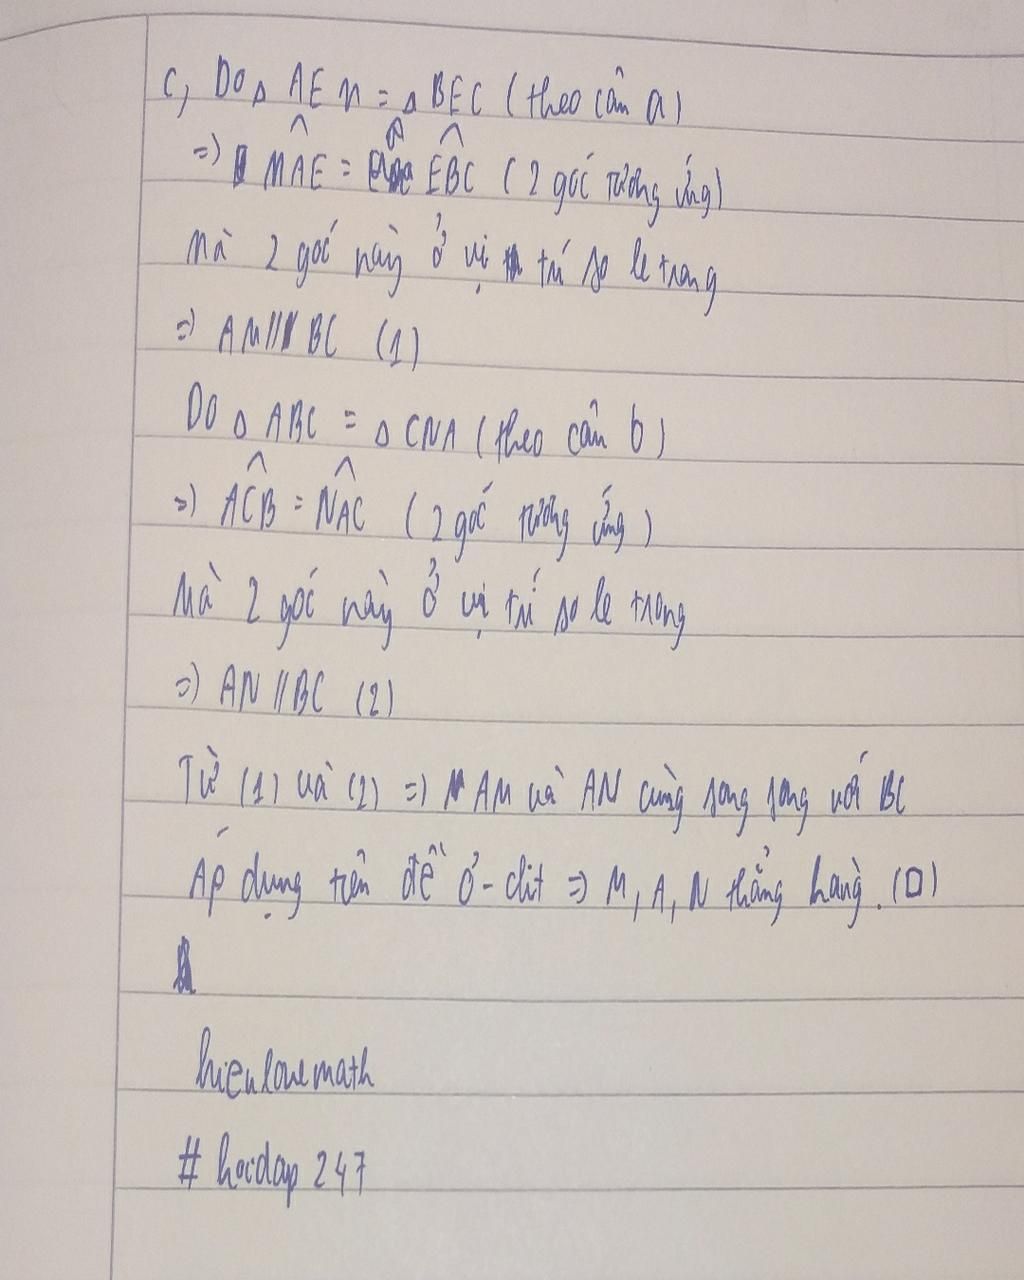 c, Do △ AEM = △ BEC (theo câu a)
=> MÂE = EB̂C (2 góc tương ứng)
Mà 2 góc này ở vị trí so le trong
=> AM // BC (1)
Do △ ABC = △ CNA (theo câu b)
=> AĈB = NÂC (2 góc tương ứng)
Mà 2 góc này ở vị trí so le trong
=> AN // BC (2)
Từ (1) và (2) => AM và AN cùng song song với BC
Áp dụng tiên đề Ơ-clit => M, A, N thẳng hàng. (□)
hienlovemath
# hoidap 247